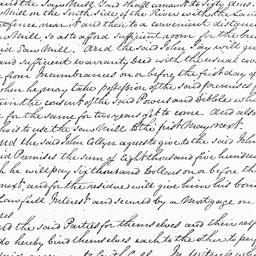 and the Saw Mill Said shall amount to Sixty
Mill on the West side of the River with the
and there to a convenient distance
Saw Mill, so as to afford sufficient room for the
Saw Mill. And the said John Jay will
and sufficient warranty Deed with the usual
from Incumbrances on or before the first day of
when he may take possession of the said premises
the consent of the said Powers and Dibble who
for the same for two years yet to come. And also
is to use the Saw Mill to the first May next.
And the said John Collyer agrees to give to the said John
said Premises the sum of Eight thousand five hundred
he will pay Six thousand Dollars on or before the
next, and for the residue will give him his bond
Lawful Interest and secured by a Mortgage on
And the said Parties for themselves and their
do hereby bind themselves each to the other to pay